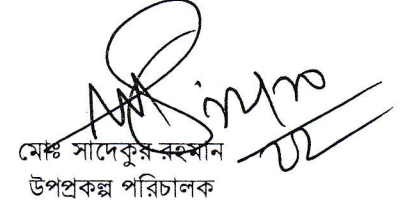 মোঃ সাদেকুর রহমান
উপপ্রকল্প পরিচালক